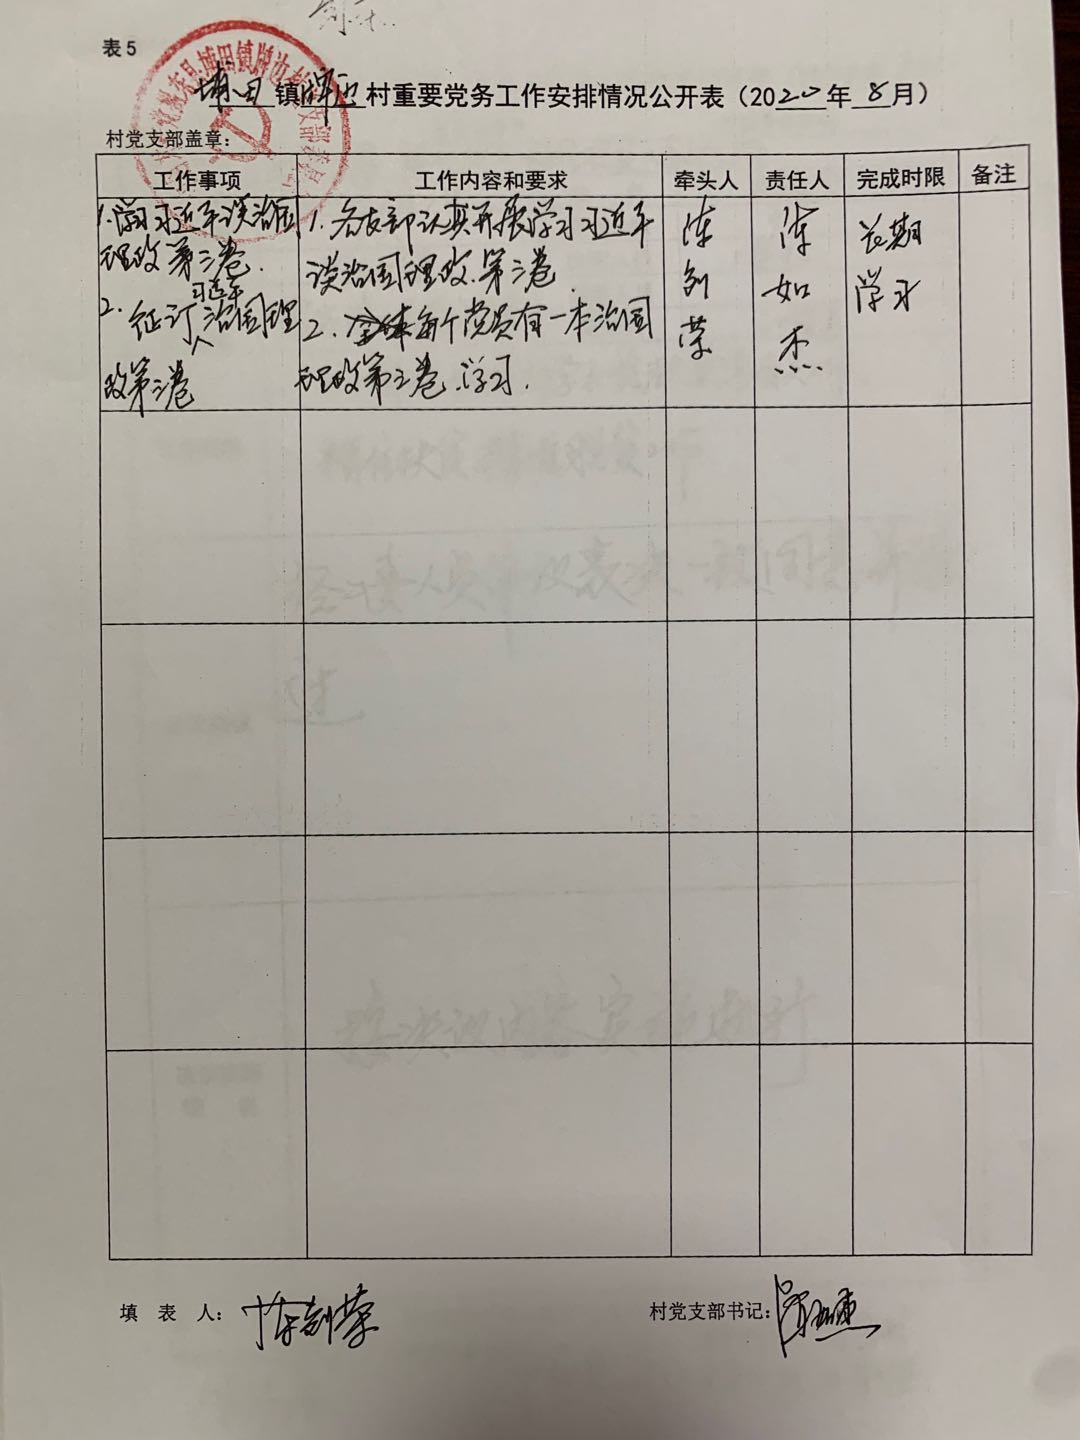 表5
埔田镇牌边村重要党务工作安排情况公开表（2020年8月）
村党支部盖章：
工作事项 工作内容和要求 牵头人 责任人 完成时限 备注
1.学习习近平谈治国
理政第三卷.
2.征订习近平治国理
政第三卷
1.各支部认真开展学习习近平
谈治国理政.第三卷
2.每个党员有一本治国
理政第三卷.学习.
陈
剑
荣
陈
如
杰
长期
学习
填 表 人：陈剑荣
村党支部书记：陈如杰